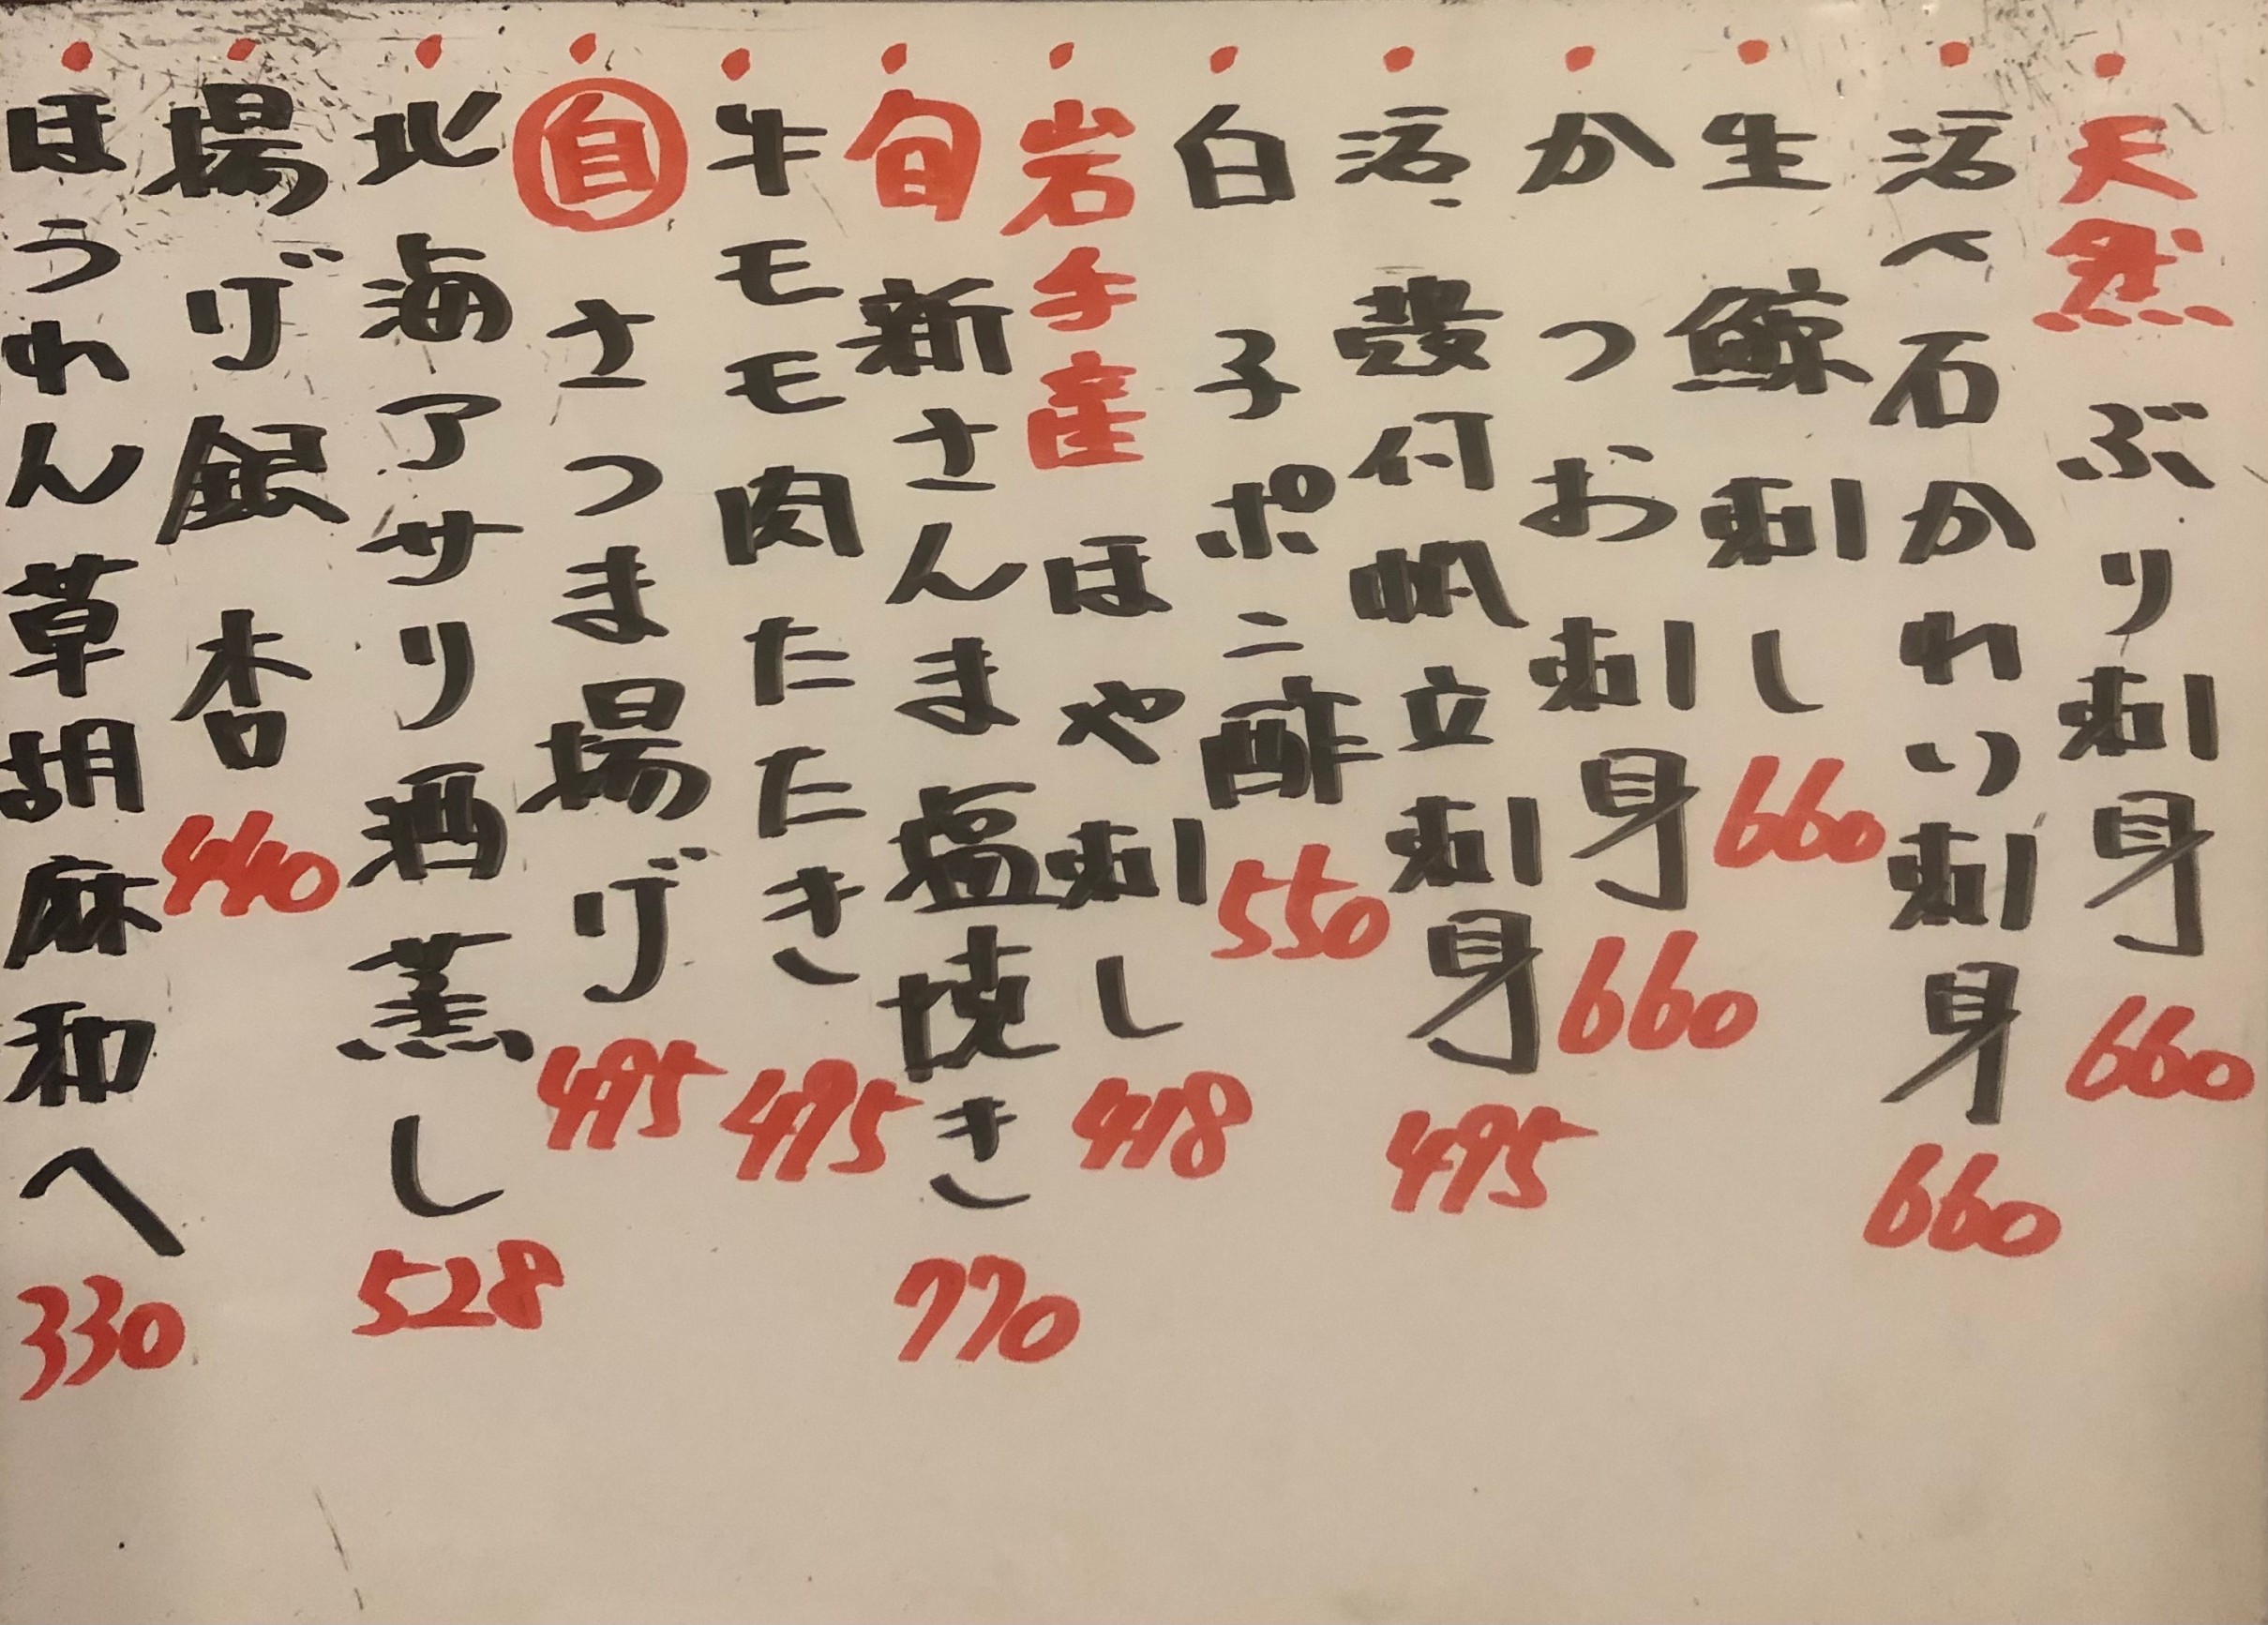 ・天然ぶり刺身 660
・活〆石かれい刺身 660
・生鯨刺し 660
・かつお刺身 660
・活、殻付帆立刺身 495
・白子ポン酢 550
・岩手産ほや刺し 418
・旬新さんま塩焼き 770
・牛モモ肉たたき 495
・自さつま揚げ 495
・北海アサリ酒蒸し 528
・揚げ銀杏 440
・ほうれん草胡麻和へ 330